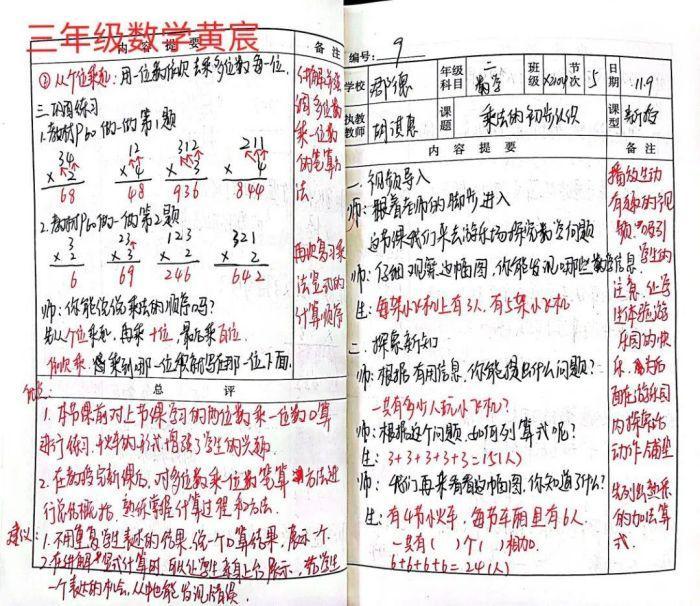 三年级数学黄宸
内容提要
备注
②从个位乘起:用一位数依次去乘多位数每一位.
三.巩固练习
1.教材P60做一做第1题
34 12 312 211
×2 ×4 ×3 ×4
68 48 936 844
2.教材P60做一做第2题
3 23 123 321
×2 ×3 ×2 ×2
6 69 246 642
师:你能说说乘法的顺序吗?
先从个位乘起,再乘十位,最后乘百位.
乘到哪一位积就写在那一位下面.
调多位数
乘一位数
的笔算方
法.
再次复习乘
法竖式的
计算顺序
总评
优点:
1.本节课前对上节课学习的两位数乘一位数口算
进行练习,小火车的形式增强了学生的兴趣.
2.在教学完新课后,对多位数乘一位数笔算方法进
行总结概括,熟练掌握计算过程和方法.
建议:
1.不用重复学生表述的结果,说一个口算结果,展示一个.
2.在讲解竖式计算时,可以让学生亲自上台展示,给学生
一个表达的机会,从中也能发现错误.
编号:9
学校 君德
年级科目 二数学
班级 X2104
节次 5
日期 11.9
执教教师
课题 乘法的初步认识
课型 新授
内容提要
备注
一.视频导入
师:跟着老师的脚步进入
这节课我们来去游乐场探究数学问题
师:仔细观察这幅图,你能发现哪些数学信息.
生:每架小飞机上有3人,有5架小飞机
二.探索新知
师:根据有用信息,你能提出什么问题?
一共有多少人玩小飞机?
师:根据这个问题,如何列算式呢?
生:3+3+3+3+3=15(人)
师:我们再来看看这幅图,你知道了什么?
生:有4节小火车,每节车厢里有6人.
一共有( )个( )相加.
6+6+6+6=24(人)
播放生动
有趣的视
频,吸引
学生的
注意,让学
生体验游
乐园的快
乐,为后
面在游乐园
内探索活
动作铺垫
先列出熟悉
的加法算
式.